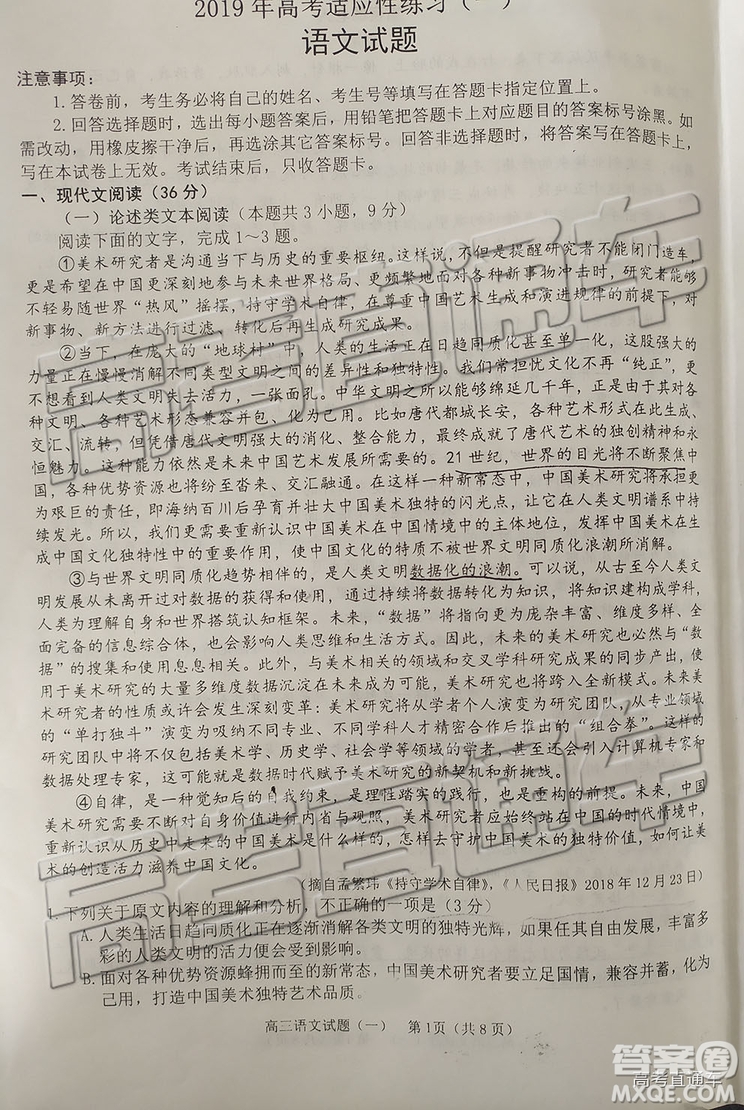 2019年高考适应性练习（一）
语文试题
注意事项：
1.答卷前，考生务必将自己的姓名、考生号等填写在答题卡指定位置上。
2.回答选择题时，选出每小题答案后，用铅笔把答题卡上对应题目的答案标号涂黑。如
需改动，用橡皮擦干净后，再选涂其它答案标号。回答非选择题时，将答案写在答题卡上，
写在本试卷上无效。考试结束后，只收答题卡。
一、现代文阅读（36分）
（一）论述类文本阅读（本题共3小题，9分）
阅读下面的文字，完成1～3题。
①美术研究者是沟通当下与历史的重要枢纽。这样说，不但是提醒研究者不能闭门造车，
更是希望在中国更深刻地参与未来世界格局、更频繁地面对各种新事物冲击时，研究者能够
不轻易随世界“热风”摇摆，持守学术自律，在尊重中国艺术生成和演进规律的前提下，对
新事物、新方法进行过滤、转化后再生成研究成果。
②当下，在庞大的“地球村”中，人类的生活正在日趋同质化甚至单一化，这股强大的
力量正在慢慢消解不同类型文明之间的差异性和独特性。我们常担忧文化不再“纯正”，更不
想看到人类文明失去活力，一张面孔。中华文明之所以能够绵延几千年，正是由于其对各
种文明、各种艺术形态兼容并包、化为己用。比如唐代都城长安，各种艺术形式在此生成、
交汇、流转，但凭借唐代文明强大的消化、整合能力，最终成就了唐代艺术的独创精神和永
恒魅力。这种能力依然是未来中国艺术发展所需要的。21世纪，世界的目光将不断聚焦中
国，各种优势资源也将纷至沓来、交汇融通。在这样一种新常态中，中国美术研究将承担更
为艰巨的责任，即海纳百川后孕育并壮大中国美术独特的闪光点，让它在人类文明谱系中持
续发光。所以，我们更需要重新认识中国美术在中国情境中的主体地位，发挥中国美术在生
成中国文化独特性中的重要作用，使中国文化的特质不被世界文明同质化浪潮所消解。
③与世界文明同质化趋势相伴的，是人类文明数据化的浪潮。可以说，从古至今人类文
明发展从未离开过对数据的获得和使用，通过持续将数据转化为知识，将知识建构成学科，
人类为理解自身和世界搭筑认知框架。未来，“数据”将指向更为庞杂丰富、维度更加多样、全
面完备的信息综合体，也会影响人类思维和行为方式。因此，未来的美术研究也必然与“数
据”的搜集和使用息息相关。此外，与美术相关的领域和交叉学科研究成果的同步产出，使
用于美术研究的大量多维度数据沉淀在未来成为可能，美术研究也将跨入全新模式。未来美
术研究者的性质或许会发生深刻变革：美术研究将从学者个人演变为研究团队，从专业领域
的“单打独斗”演变为吸纳不同专业、不同学科人才精密合作后推出的“组合拳”。这样的
研究团队中将不仅包括美术学、历史学、社会学等领域的学者，甚至会引入计算机专家和
数据处理专家，这可能就是数据时代赋予美术研究的新契机和新挑战。
④自律，是一种觉知后的自我约束，是理性踏实的践行，也是重构的前提。未来，中国
美术研究需要不断对自身价值进行内省与观照，美术研究者应始终站在中国的时代情境中，
重新认识从历史中走来的中国美术是什么样的，怎样去守护中国美术的独特价值，如何让美
术的创造活力滋养中国文化。
（摘自孟繁玮《持守学术自律》，《人民日报》2018年12月23日）
1.下列关于原文内容的理解和分析，不正确的一项是（3分）
A.人类生活日趋同质化正在逐渐消解各类文明的独特光辉，如果任其自由发展，丰富多
彩的人类文明的活力便会受到影响。
B.面对各种优势资源蜂拥而至的新常态，中国美术研究者要立足国情，兼容并蓄，化为
己用，打造中国美术独特艺术品质。
高三语文试题（一） 第1页（共8页）
高考直通车
高考直通车
答案圈
高考直通车
MXQE.COM